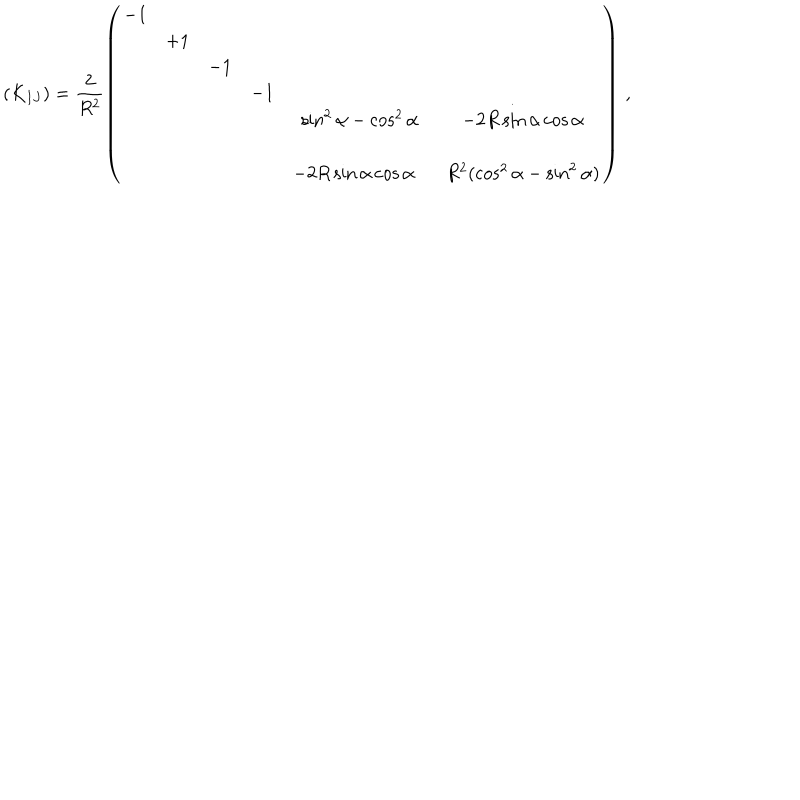 (K_{IJ}) = \frac{2}{R^2} \begin{pmatrix} -1 & & & & & \\ & +1 & & & & \\ & & -1 & & & \\ & & & -1 & & \\ & & & & \sin^2 \alpha - \cos^2 \alpha & -2R \sin \alpha \cos \alpha \\ & & & & -2R \sin \alpha \cos \alpha & R^2(\cos^2 \alpha - \sin^2 \alpha) \end{pmatrix} ,